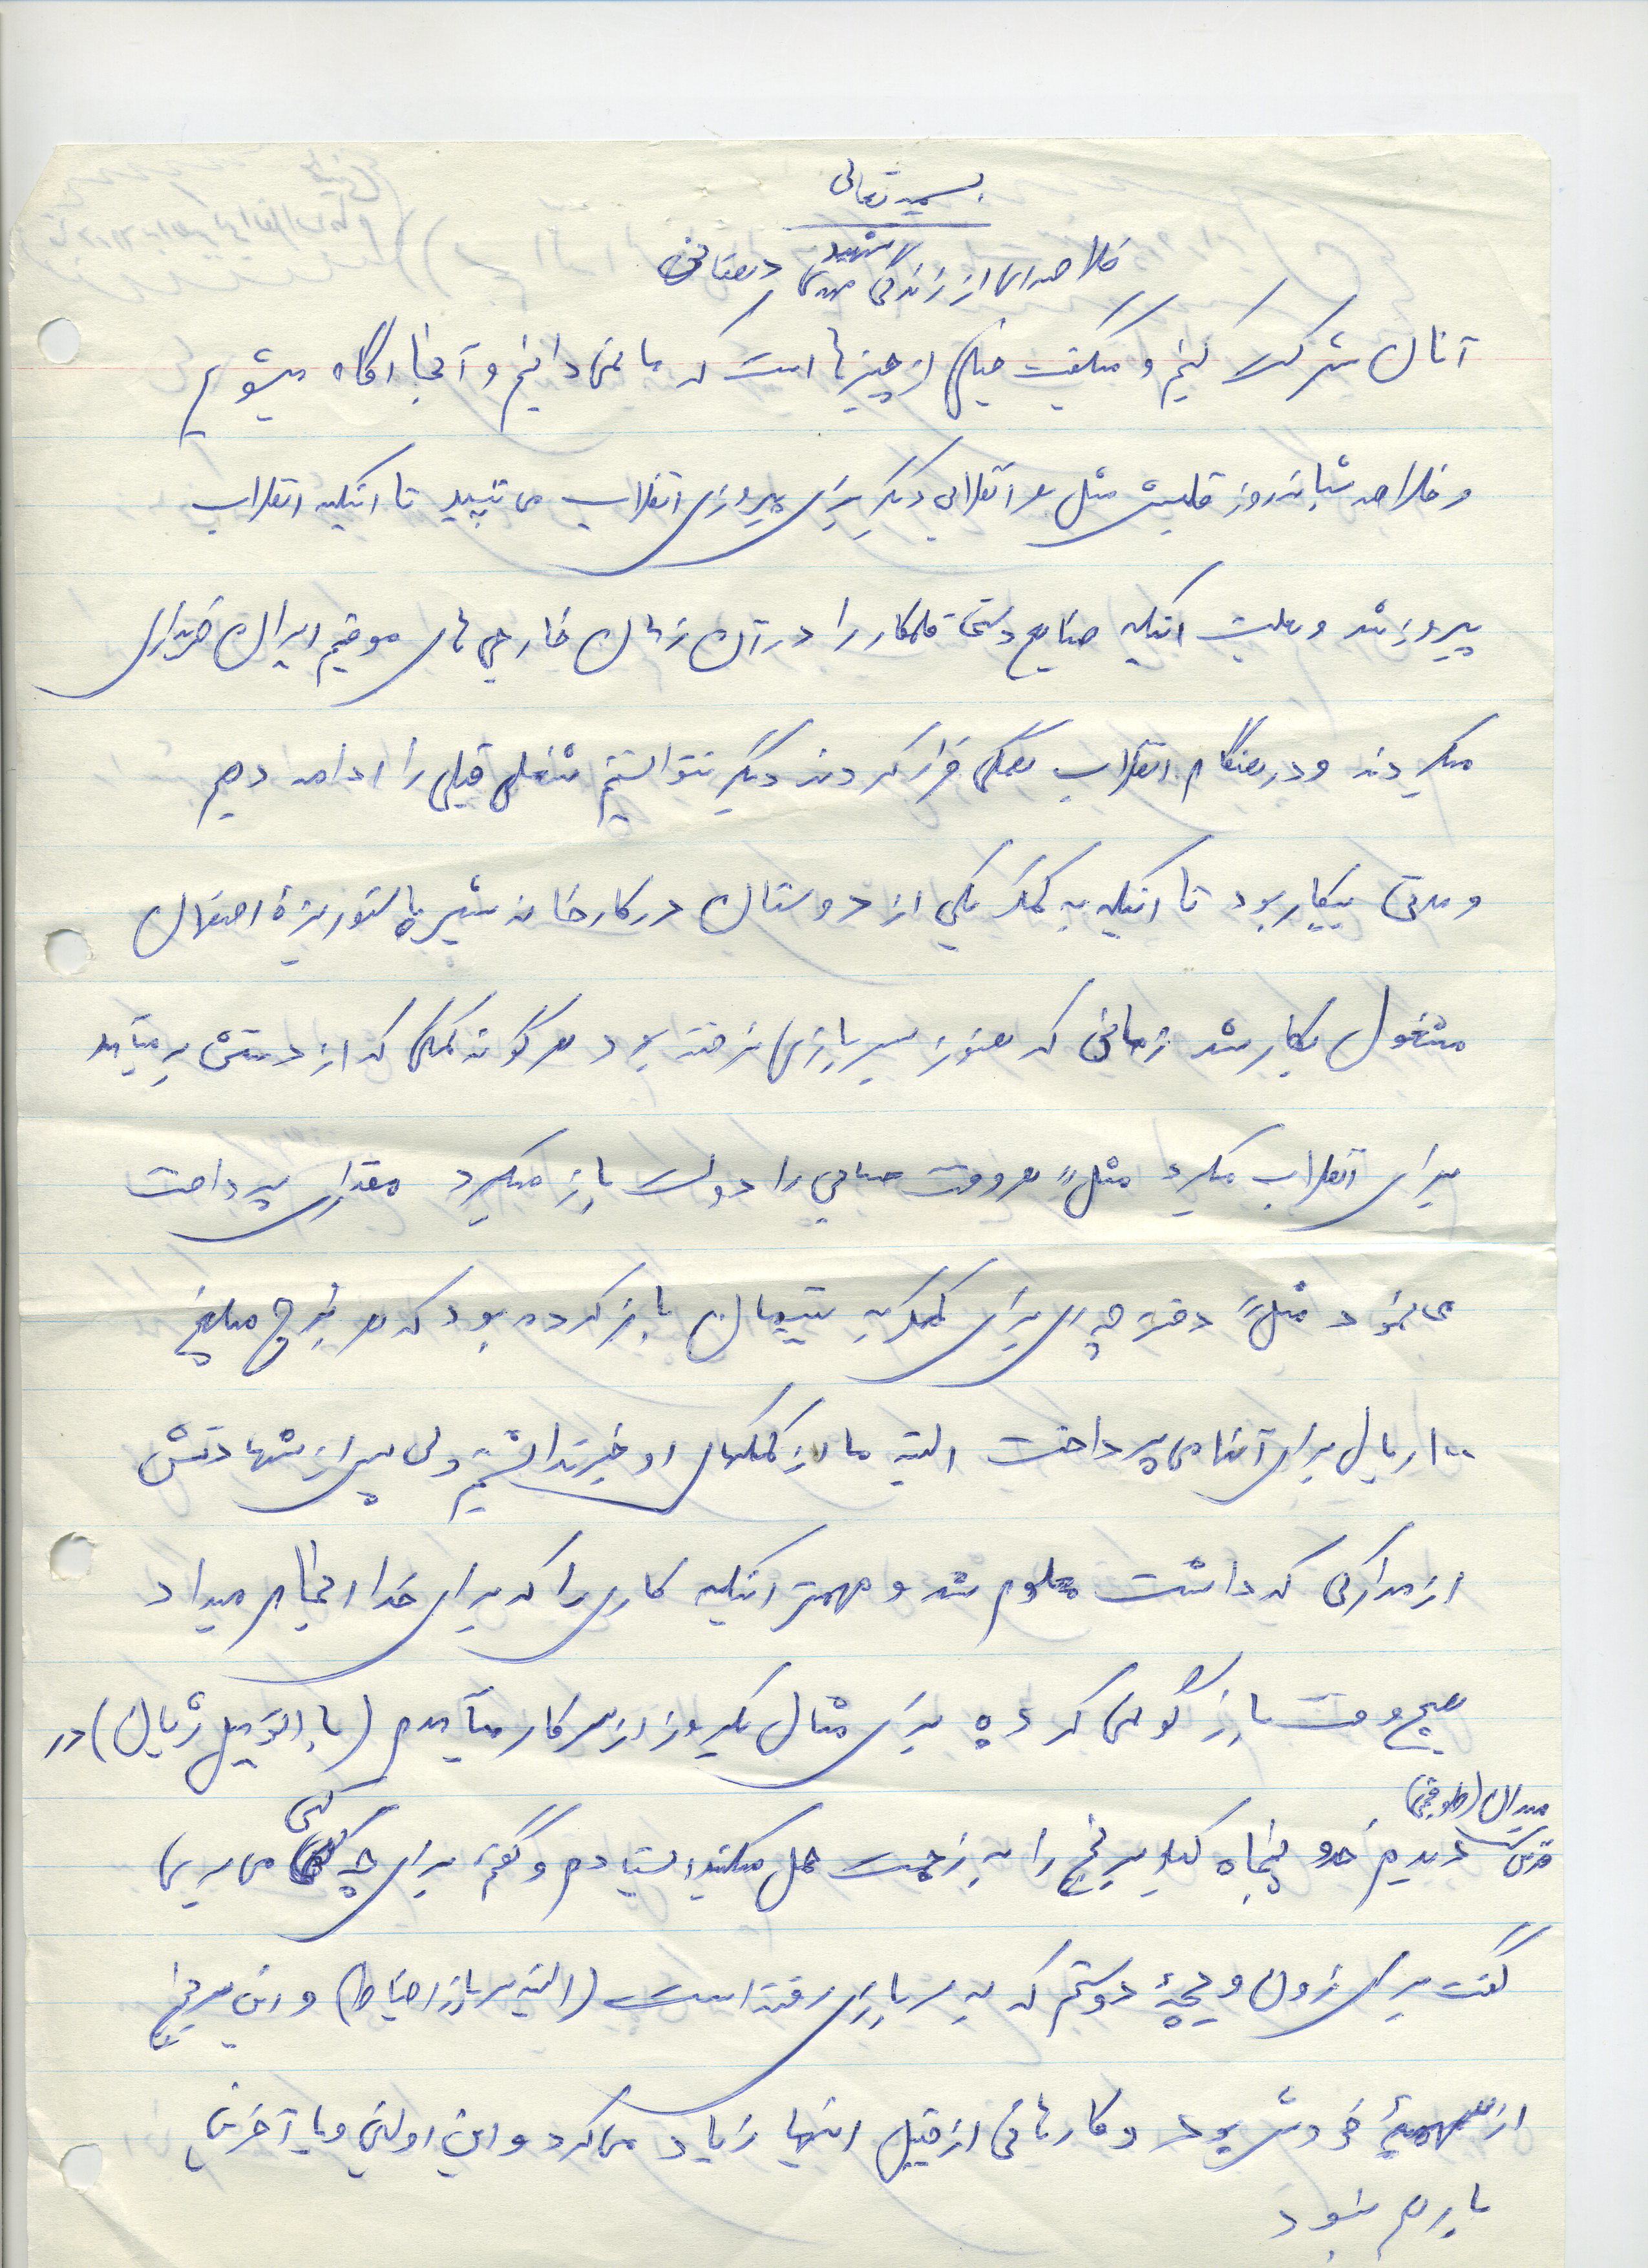 بسمه تعالی
خلاصه‌ای از زندگی شهید مهدی دهقانی
آنان شرکت کنیم و میگفت خیلی از چیزها است که ما نمی دانیم و آنجا آگاه میشویم
و خلاصه شبانه روز قلبش مثل هر انقلابی دیگر برای پیروزی انقلاب می تپید تا اینکه انقلاب
پیروز شد و بعلت اینکه صنایع دستی قلمکار را در آن زمان خارجی های مقیم ایران خریداری
میکردند و در هنگام انقلاب همگی فرار کردند دیگر نتوانستیم شغل قبلی را ادامه دهیم
و مدتی بیکار بود تا اینکه به کمک یکی از دوستان در کارخانه شیر پاستوریزه اصفهان
مشغول بکار شد زمانی که هنوز سربازی نرفته بود هر گونه کمکی که از دستش بر میآمد
برای انقلاب میکرد مثلاً هر وقت حسابی را دولت باز میکرد مقداری پرداخت
می نمود مثلاً دفترچه ای برای کمک به یتیمان باز کرده بود که هر برج مبلغ
۱۰۰ ریال برای آنها می پرداخت البته ما از کمکهای او خبر نداشتیم ولی پس از شهادتش
از مدارکی که داشت معلوم شد و مهمتر اینکه کاری را که برای خدا انجام میداد
هیچ وقت بازگو نمی کرد برای مثال یکروز از سر کار میآمدم (با اتومبیل ژیان) در
میدان (طوقچی)
قدس دیدم حدود پنجاه کیلو برنج را به زحمت حمل میکند ایستادم و گفتم برای چه کسی می بری
گفت برای زن و بچهٔ دوستم که به سربازی رفته است (البته سرباز احتیاط) و این برنج
از سهمیهٔ خودش بود و کارهائی از قبیل اینها زیاد می کرد و این اولین و یا آخرین
بارهم نبود